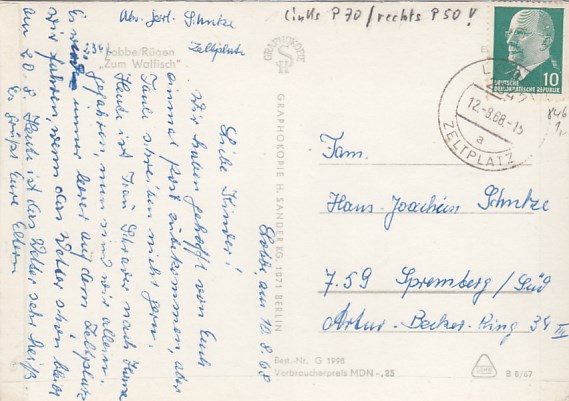 links P 70 / rechts P 50 !
Abs. Schutze
Zeltplatz
2341
Lobbe/Rügen
„Zum Walfisch"
Lobbe am 10. 8. 68
Liebe Kinder!
Wir haben gehofft von Euch
einmal Post zu bekommen, aber
Faule schreiben nicht gern.
Heute ist Frau nach Hause
gefahren, nun sind wir allein.
Es wird immer leerer auf dem Zeltplatz
wir fahren, wenn das Wetter schön bleibt
am 20. 8. Heute ist das Wetter sehr heiß.
Es grüßt Eure Eltern
GRAPHOKOPIE
GRAPHOKOPIE H. SANDER KG. 1071 BERLIN
10
DEUTSCHE
DEMOKRATISCHE REPUBLIK
12.-8.68.-15
a
ZELTPLATZ
846
1,-
Fam.
Hans-Joachim Schutze
759 Spremberg/Süd
Artur-Becker-Ring 34 III
Best.-Nr. G 1998
Verbraucherpreis MDN -,25
B 8/67